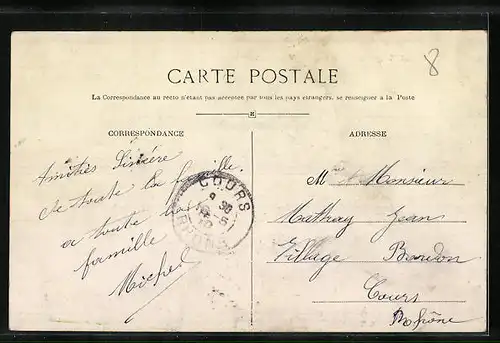 8
CARTE POSTALE
La Correspondance au recto n'étant pas acceptée par tous les pays étrangers, se renseigner à la Poste
E
CORRESPONDANCE
Amitiés Sincère
de toute la famille
a toute
famille
Michel
COURS
RHONE
ADRESSE
Mme et Monsieur
Mathay Jean
Village Burdon
Cours
Rhône